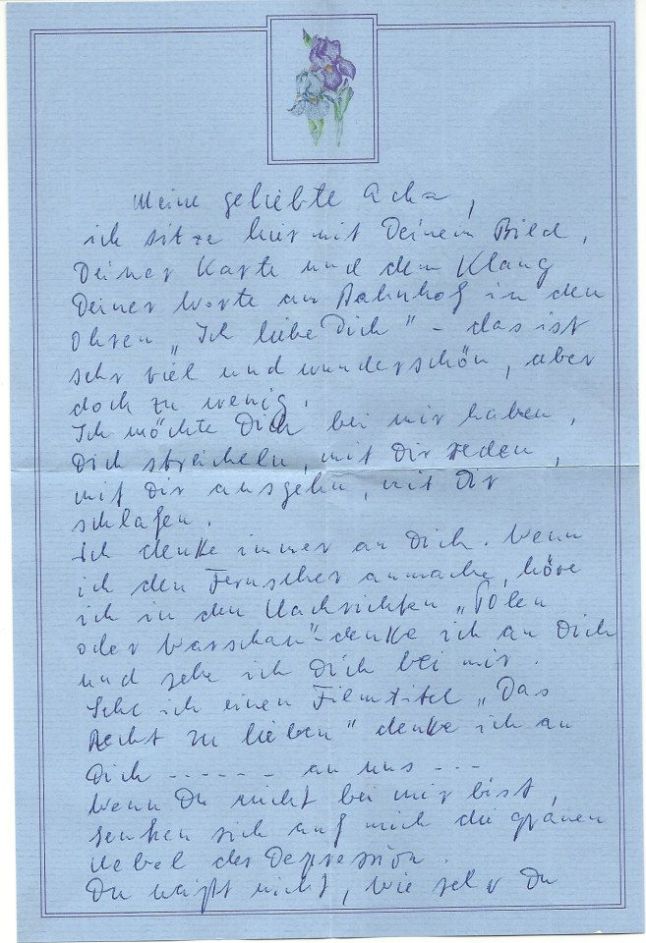 Meine geliebte Acha,
ich sitze hier mit Deinem Bild,
Deiner Karte und dem Klang
Deiner Worte am Bahnhof in den
Ohren „Ich liebe Dich" - das ist
sehr viel und wunderschön, aber
doch zu wenig.
Ich möchte Dich bei mir haben,
Dich streicheln, mit Dir reden,
mit Dir ausgehn, mit Dir
schlafen.
Ich denke immer an Dich. Wenn
ich den Fernseher anmache, höre
ich in den Nachrichten „Polen
oder Warschau" - denke ich an Dich
und sehe ich Dich bei mir.
Sehe ich einen Filmtitel „Das
Recht zu lieben" denke ich an
Dich ------ an uns ---
Wenn Du nicht bei mir bist,
senken sich auf mich die grauen
Nebel der Depression.
Du weißt nicht, wie sehr Du